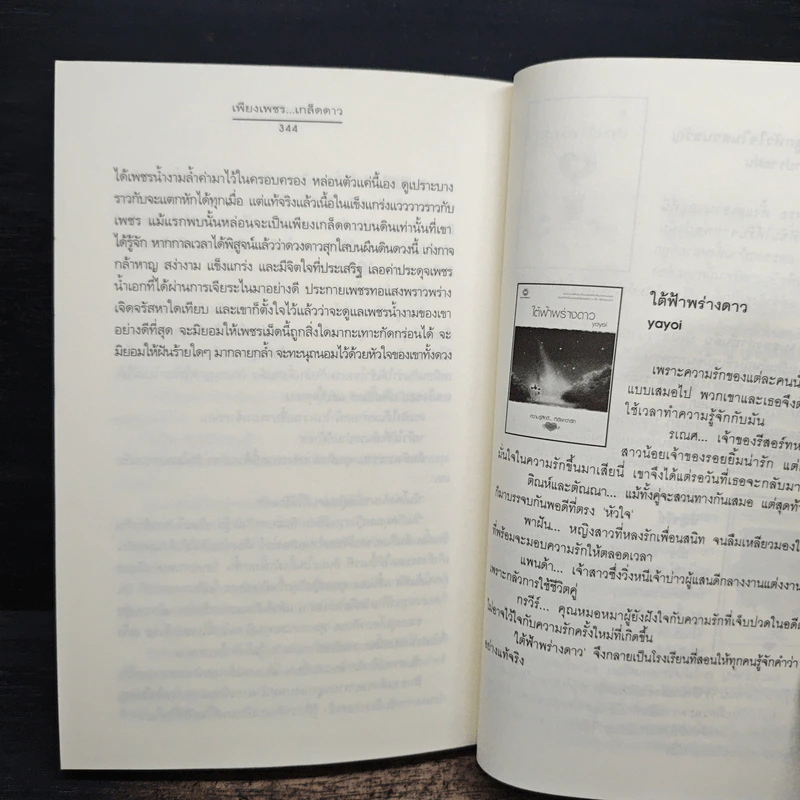 เพียงเพชร...เกล็ดดาว
344
ได้เพชรน้ำงามล้ำค่ามาไว้ในครอบครอง หล่อนตัวแค่นี้เอง ดูเปราะบาง
ราวกับจะแตกหักได้ทุกเมื่อ แต่แท้จริงแล้วเนื้อในแข็งแกร่งแวววาวราวกับ
เพชร แม้แรกพบนั้นหล่อนจะเป็นเพียงเกล็ดดาวบนดินเท่านั้นที่เขา
ได้รู้จัก หากกาลเวลาได้พิสูจน์แล้วว่าดวงดาวสุกใสบนผืนดินดวงนี้ เก่งกาจ
กล้าหาญ สง่างาม แข็งแกร่ง และมีจิตใจที่ประเสริฐ เลอค่าประดุจเพชร
น้ำเอกที่ได้ผ่านการเจียระไนมาอย่างดี ประกายเพชรทอแสงพราวพร่าง
เจิดจรัสหาใดเทียบ และเขาก็ตั้งใจไว้แล้วว่าจะดูแลเพชรน้ำงามของเขา
อย่างดีที่สุด จะมิยอมให้เพชรเม็ดนี้ถูกสิ่งใดมากะเทาะกัดกร่อนได้ จะ
มิยอมให้ฝันร้ายใดๆ มากลายกล้ำ จะทะนุถนอมไว้ด้วยหัวใจของเขาทั้งดวง
ใต้ฟ้าพร่างดาว
yayoi
ใต้ฟ้าพร่างดาว
yayoi
เพราะความรักของแต่ละคนนั
แบบเสมอไป พวกเขาและเธอจึงต
ใช้เวลาทำความรู้จักกับมัน
รเณศ... เจ้าของรีสอร์ทห
สาวน้อยเจ้าของรอยยิ้มน่ารัก แต่
มั่นใจในความรักขึ้นมาเสียนี่ เขาจึงได้แต่รอวันที่เธอจะกลับมา
ติณห์และตัณณา... แม้ทั้งคู่จะสวนทางกันเสมอ แต่สุดท้
ก็มาบรรจบกันพอดีที่ตรง 'หัวใจ'
พาฝัน... หญิงสาวที่หลงรักเพื่อนสนิท จนลืมเหลียวมองใ
ที่พร้อมจะมอบความรักให้ตลอดเวลา
แพนด้า... เจ้าสาวซึ่งวิ่งหนีเจ้าบ่าวผู้แสนดีกลางงานแต่งงาน
เพราะกลัวการใช้ชีวิตคู่
กรวีร์... คุณหมอหมาผู้ยังฝังใจกับความรักที่เจ็บปวดในอดีต
ไม่อาจไว้ใจกับความรักครั้งใหม่ที่เกิดขึ้น
ใต้ฟ้าพร่างดาว' จึงกลายเป็นโรงเรียนที่สอนให้ทุกคนรู้จักคำว่า
อย่างแท้จริง